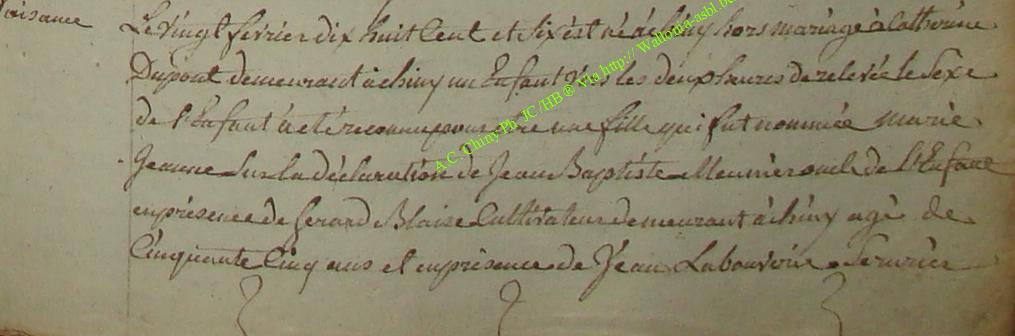 Naisance
Le vingt fevrier dix huit Cent et Six est né à chiny hors mariage à Catherine
Dupont demeurant à chiny un Enfant vers les deux heures de relevée le Sexe
de l'Enfant à eté reconnu pour etre une fille qui fut nommée marie
Jeanne Sur la déclaration de Jean Baptiste Meunier oncle de l'Enfant
en présence de Gerard Blaise Cultivateur demeurant à chiny agè de
Cinquante Cinq ans et en présence de Jean Labouverie Serurier
A.C. Chiny Ph JC /HB ® Via http:// Wallonia-asbl.be